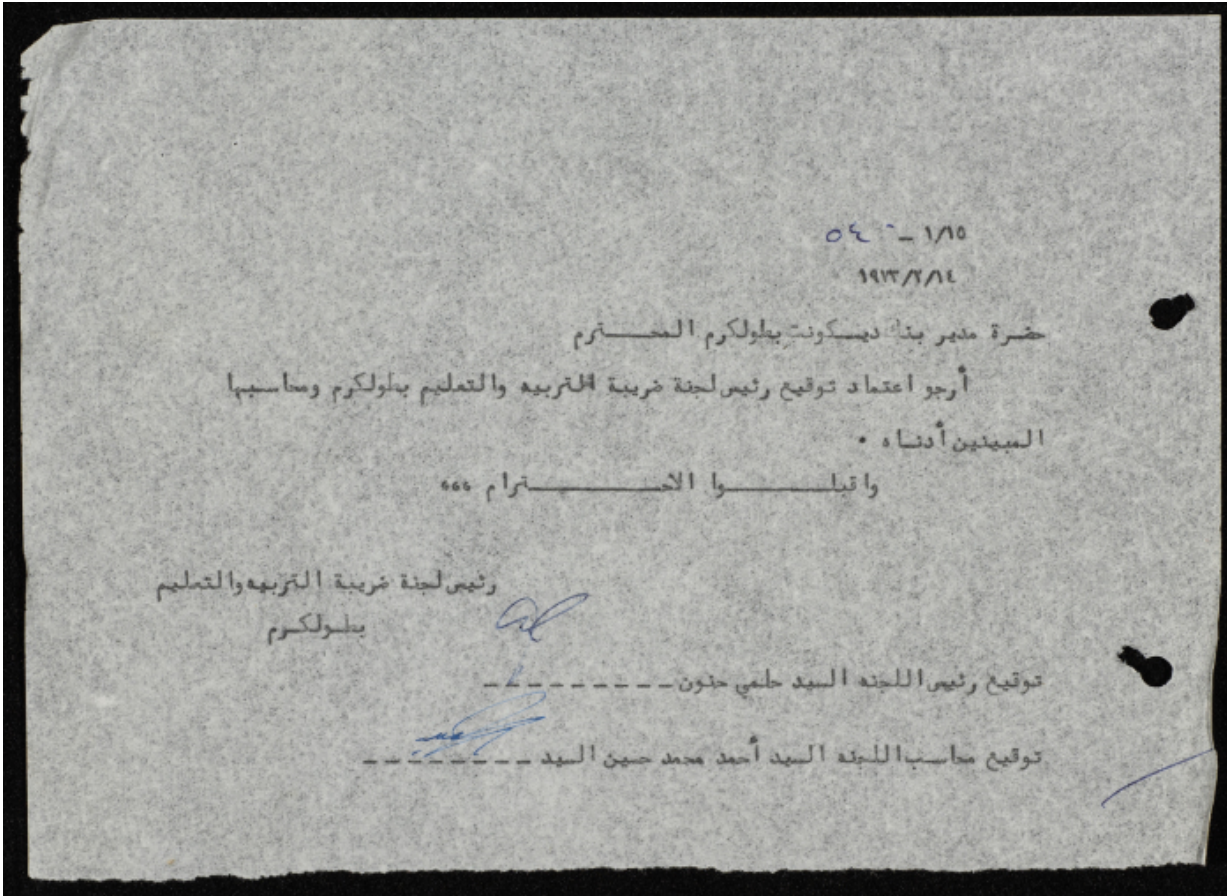 ١/١٥ – ٥٤٠
١٩٧٣/٢/١٤
حضرة مدير بنك ديسكونت بطولكرم المحترم
أرجو اعتماد توقيع رئيس لجنة ضريبة التربيه والتعليم بطولكرم ومحاسبها
المبينين أدناه .
واقبلوا الاحترام ،،،
رئيس لجنة ضريبة التربيه والتعليم
بطولكرم
توقيع رئيس اللجنه السيد حلمي حنون ---------
توقيع محاسب اللجنه السيد أحمد محمد حسين السيد --------